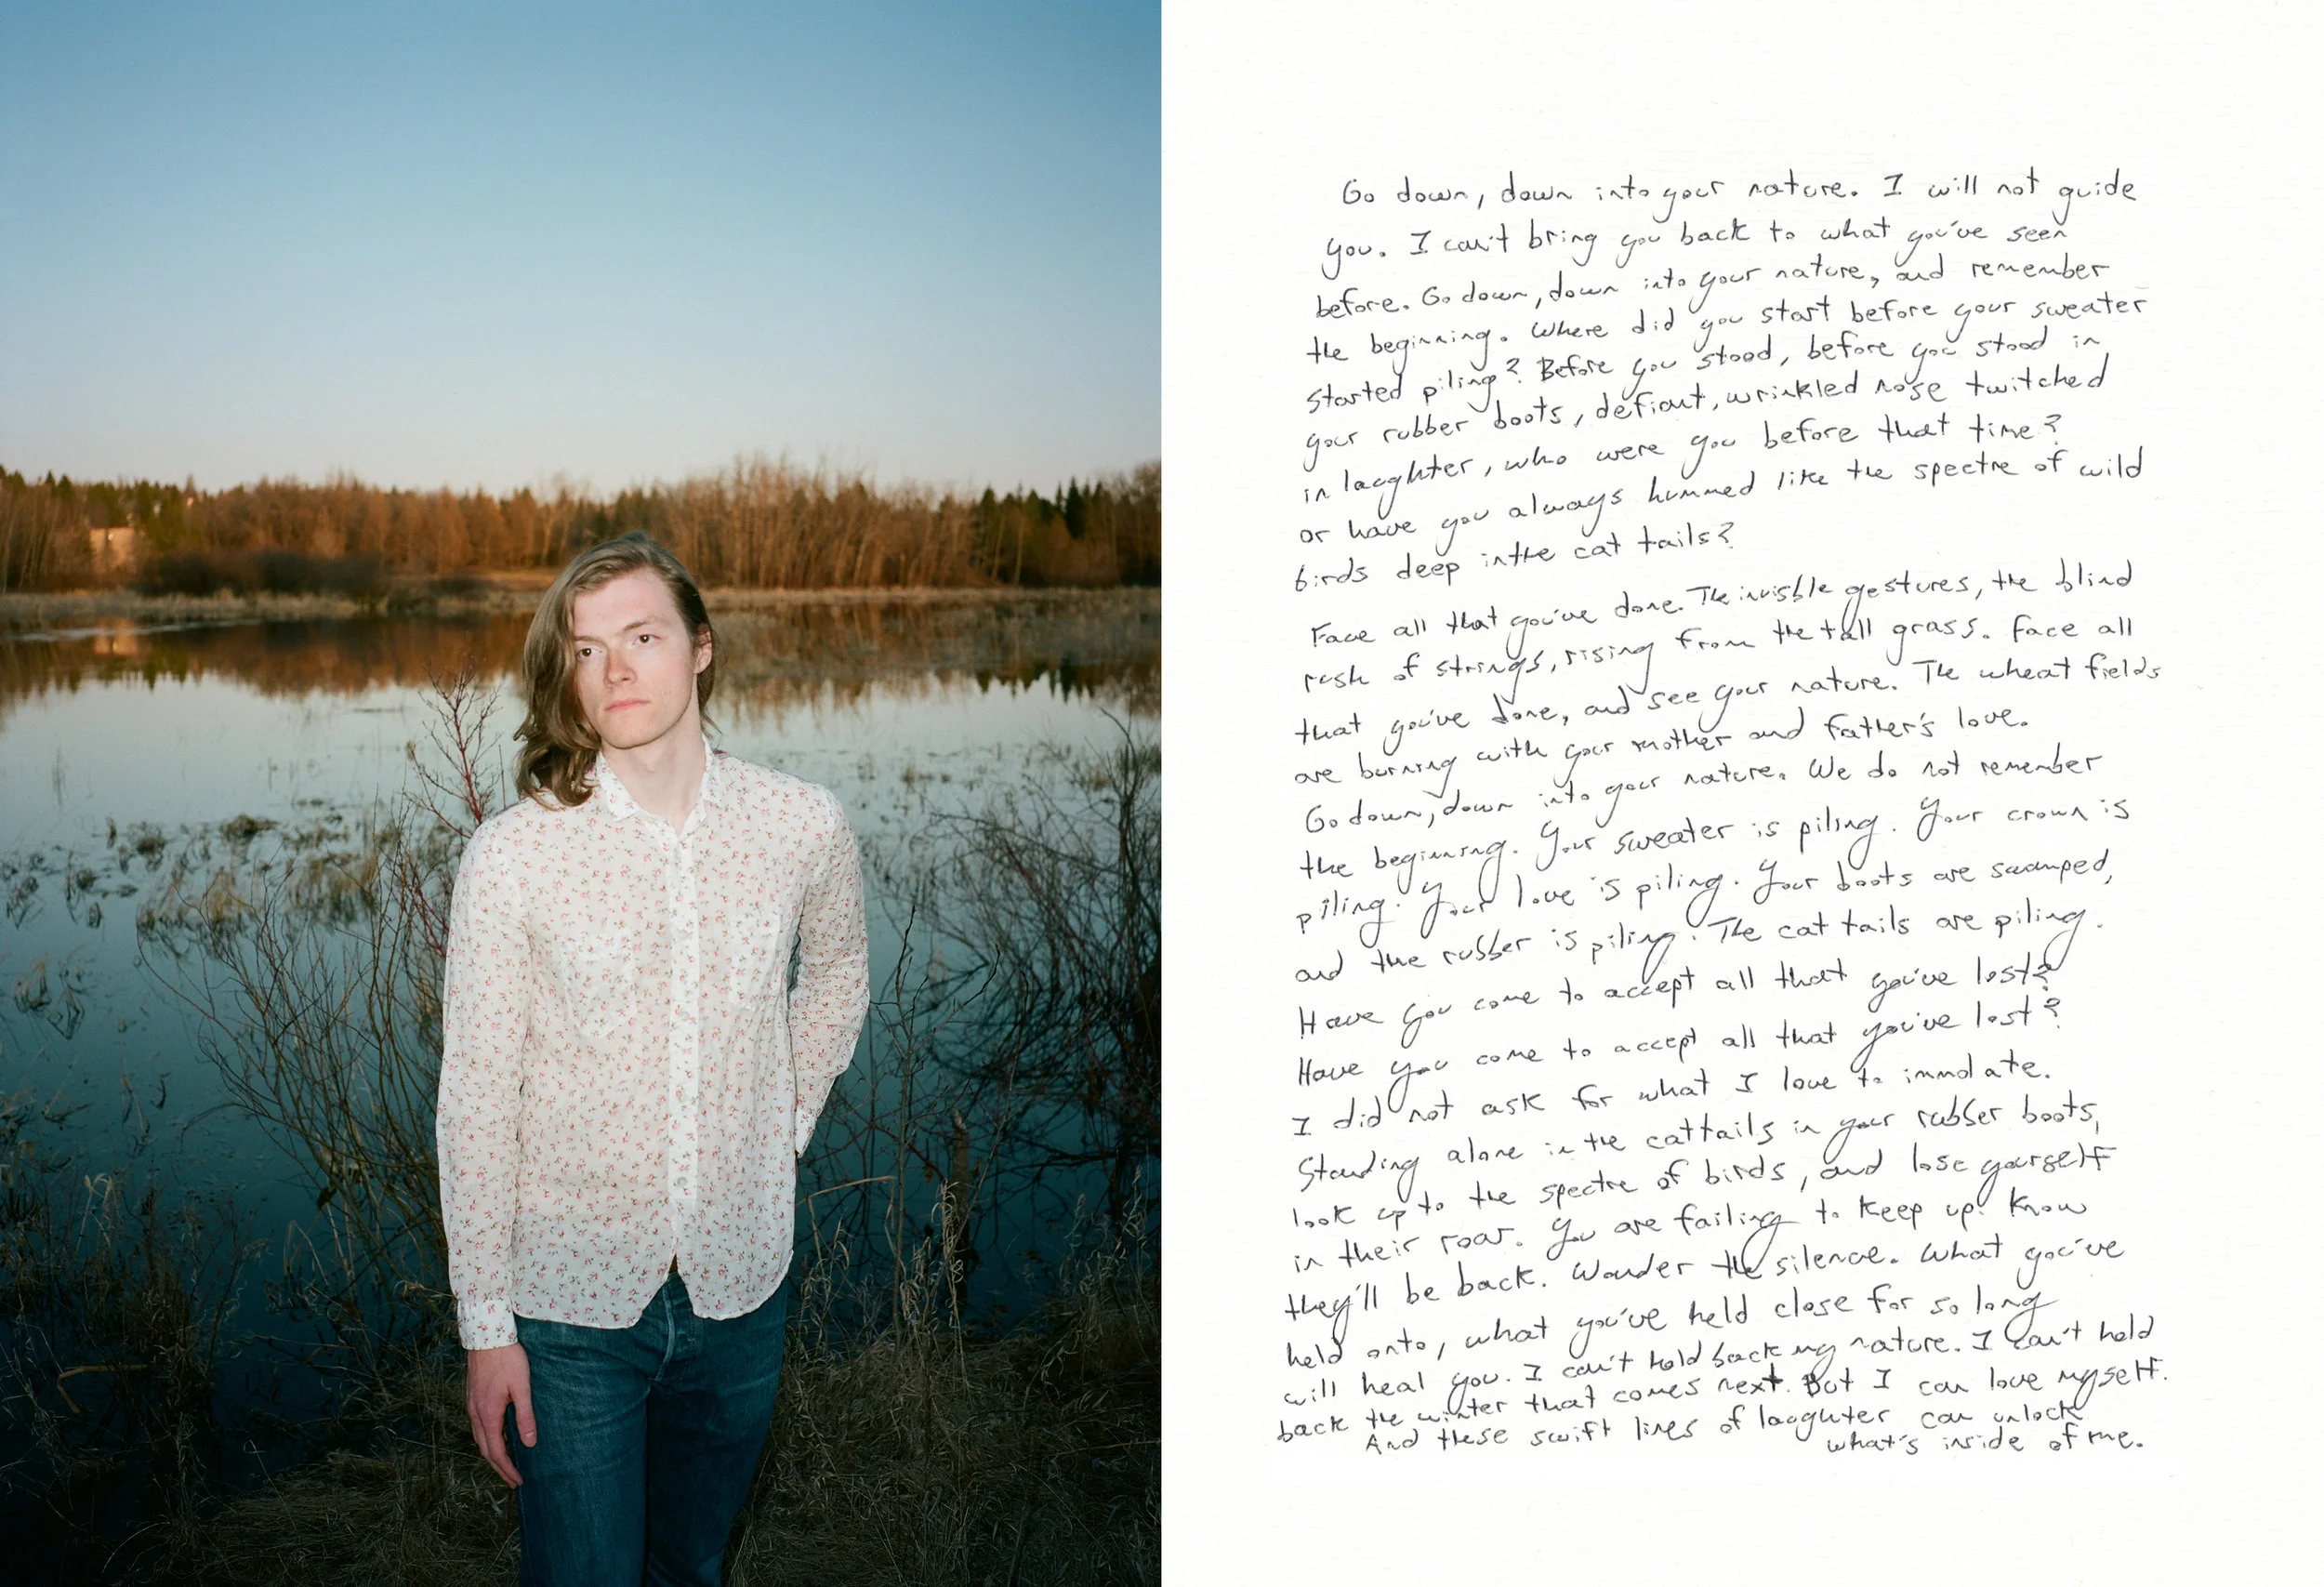 Go down, down into your nature. I will not guide
you. I can't bring you back to what you've seen
before. Go down, down into your nature, and remember
the beginning. Where did you start before your sweater
started piling? Before you stood, before you stood in
your rubber boots, defiant, wrinkled nose twitched
in laughter, who were you before that time?
or have you always hummed like the spectre of wild
birds deep in the cat tails?
Face all that you've done. The invisble gestures, the blind
rush of strings, rising from the tall grass. Face all
that you've done, and see your nature. The wheat fields
are burning with your mother and father's love.
Go down, down into your nature. We do not remember
the beginning. Your sweater is piling. Your crown is
piling. Your love is piling. Your boots are swamped,
and the rubber is piling. The cat tails are piling.
Have you come to accept all that you've lost?
Have you come to accept all that you've lost?
I did not ask for what I love to immolate.
Standing alone in the cattails in your rubber boots,
look up to the spectre of birds, and lose yourself
in their roar. You are failing to keep up. Know
they'll be back. Wonder the silence. What you've
held onto, what you've held close for so long
will heal you. I can't hold back my nature. I can't hold
back the winter that comes next. But I can love myself.
And these swift lines of laughter can unlock
what's inside of me.